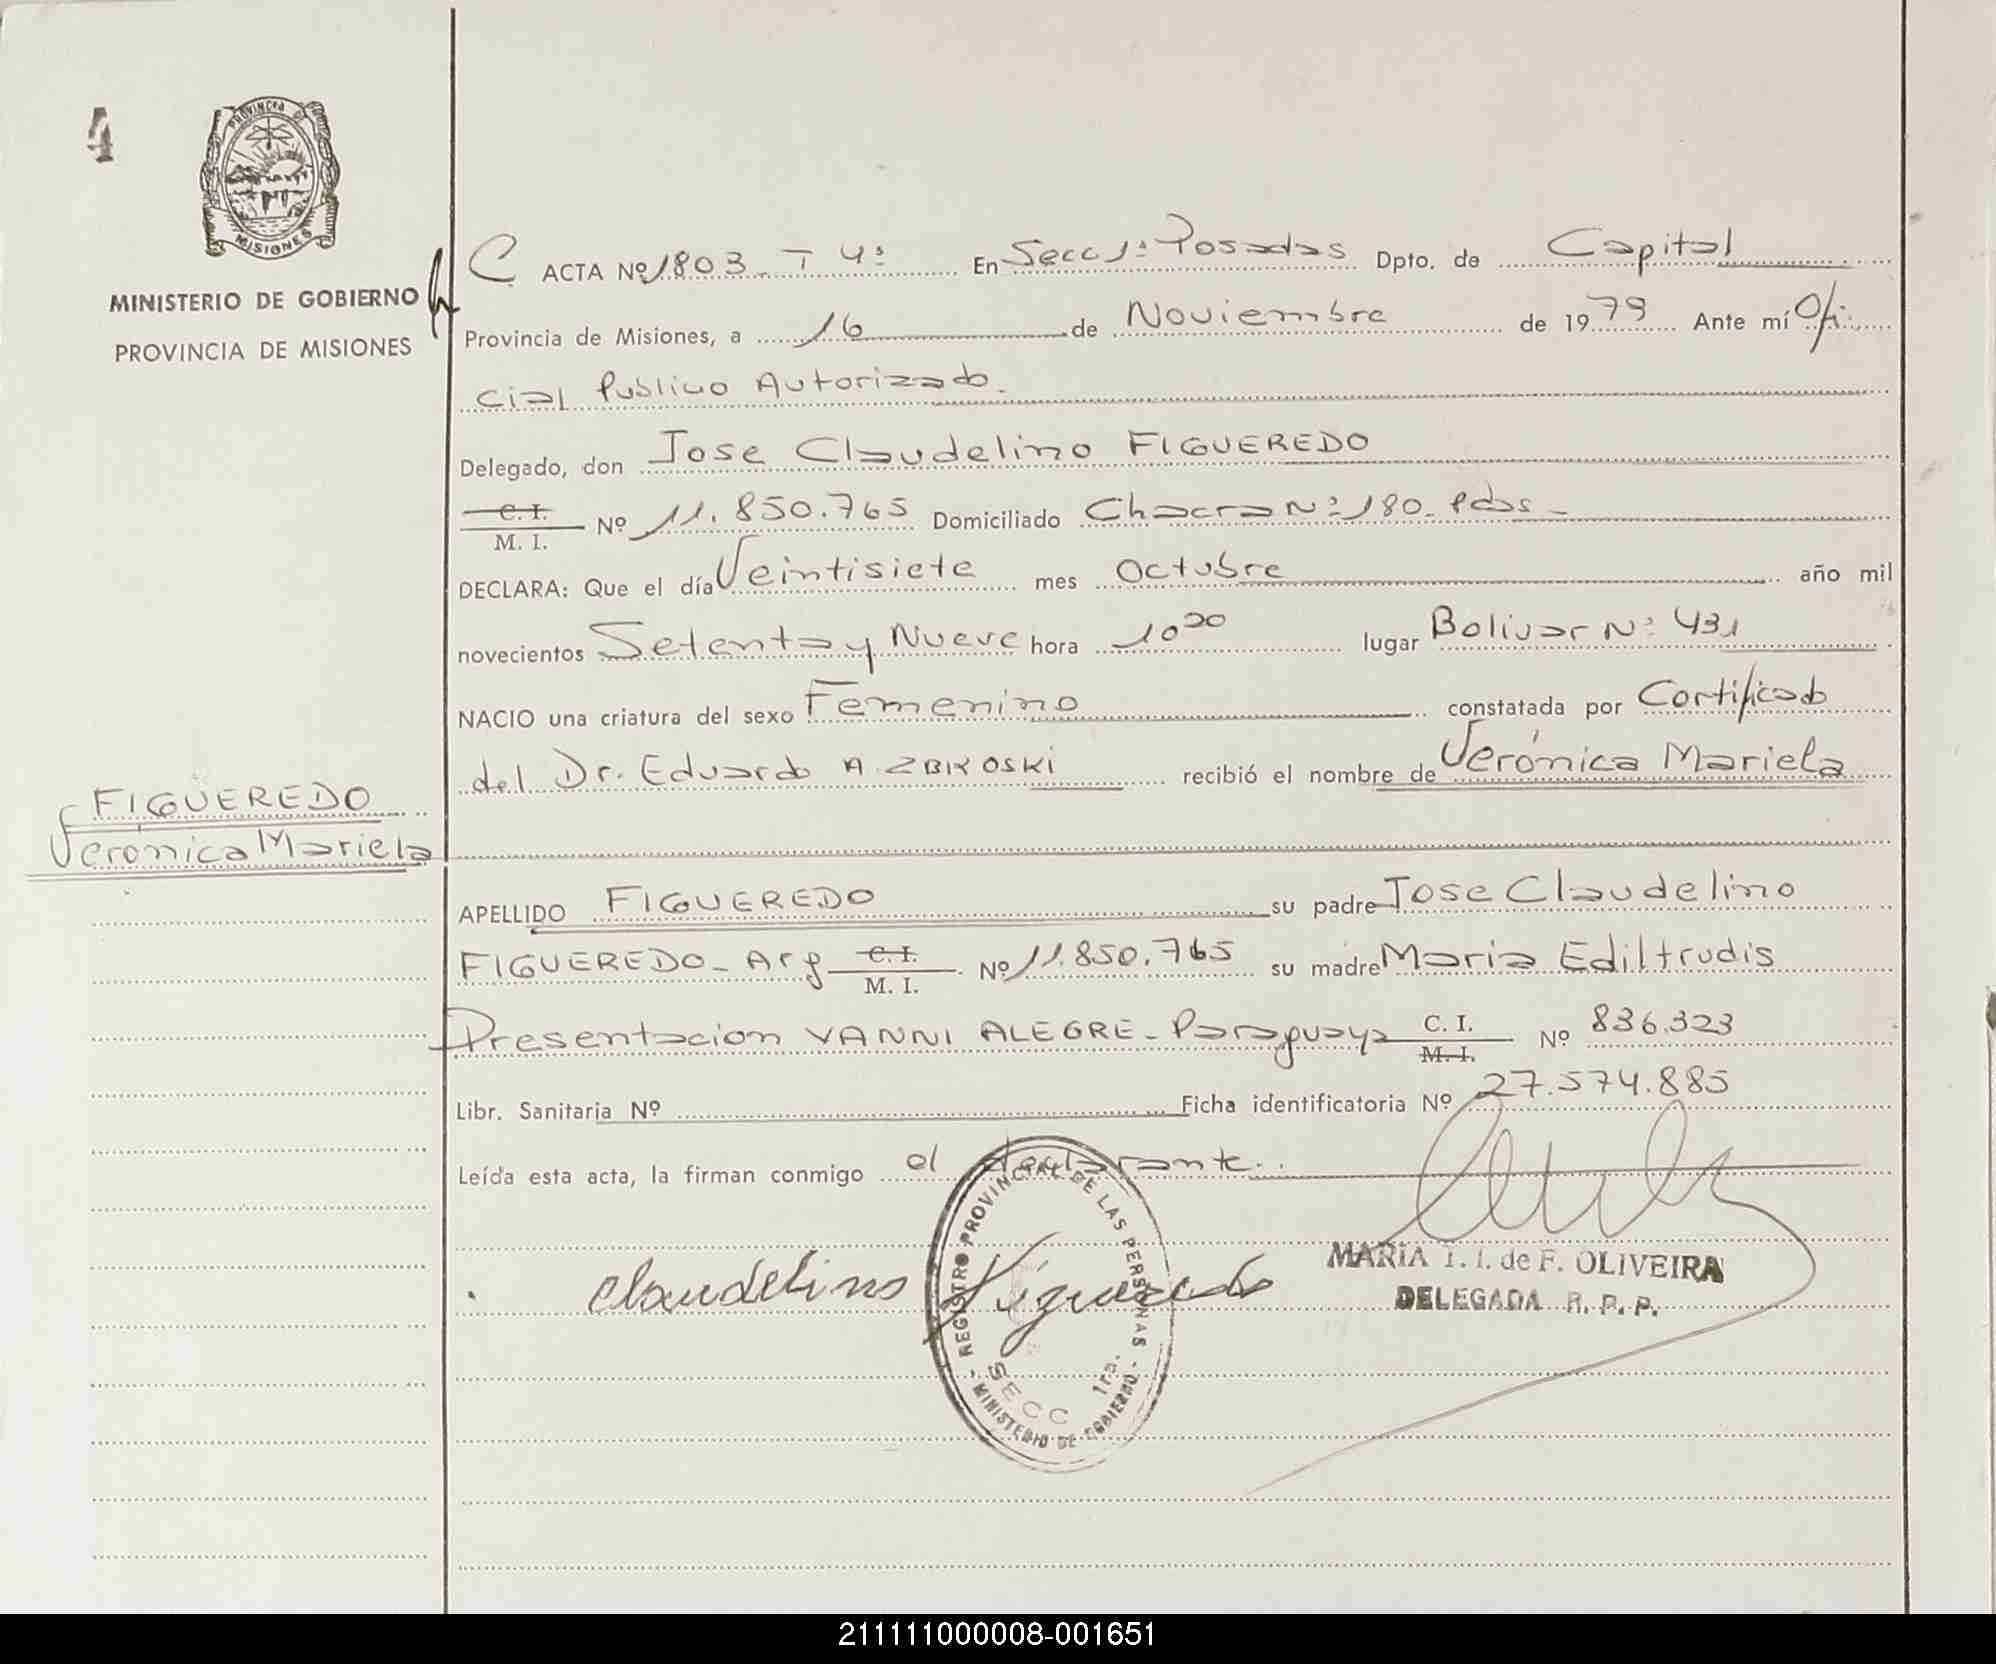 4
PROVINCIA DE
MISIONES
MINISTERIO DE GOBIERNO
PROVINCIA DE MISIONES
C ACTA Nº 1803 - T 4º En Secc 1ª Posadas Dpto. de Capital
Provincia de Misiones, a 16 de Noviembre de 1979 Ante mí Ofi
cial Publico Autorizado.
Delegado, don Jose Claudelino FIGUEREDO
C. I.
M. I. Nº 11.850.765 Domiciliado Chacra Nº 180. Pdas -
DECLARA: Que el día Veintisiete mes Octubre año mil
novecientos Setenta y Nueve hora lugar Bolivar Nº 431
NACIO una criatura del sexo Femenino constatada por Certificado
del Dr. Eduardo A. ZBIKOSKI recibió el nombre de Verónica Mariela
FIGUEREDO
Verónica Mariela
APELLIDO FIGUEREDO su padre Jose Claudelino
FIGUEREDO - Arg C. I.
M. I. Nº 11.850.765 su madre Maria Ediltrudis
Presentacion VANNI ALEGRE - Paraguaya C. I.
M. I. Nº 836.323
Libr. Sanitaria Nº Ficha identificatoria Nº 27.574.885
Leída esta acta, la firman conmigo el declarante.
Claudelino Figueredo
REGISTRO PROVINCIAL DE LAS PERSONAS
SECC 1ra.
- MINISTERIO DE GOBIERNO -
MARIA T. I. de F. OLIVEIRA
DELEGADA R. P. P.
211111000008-001651